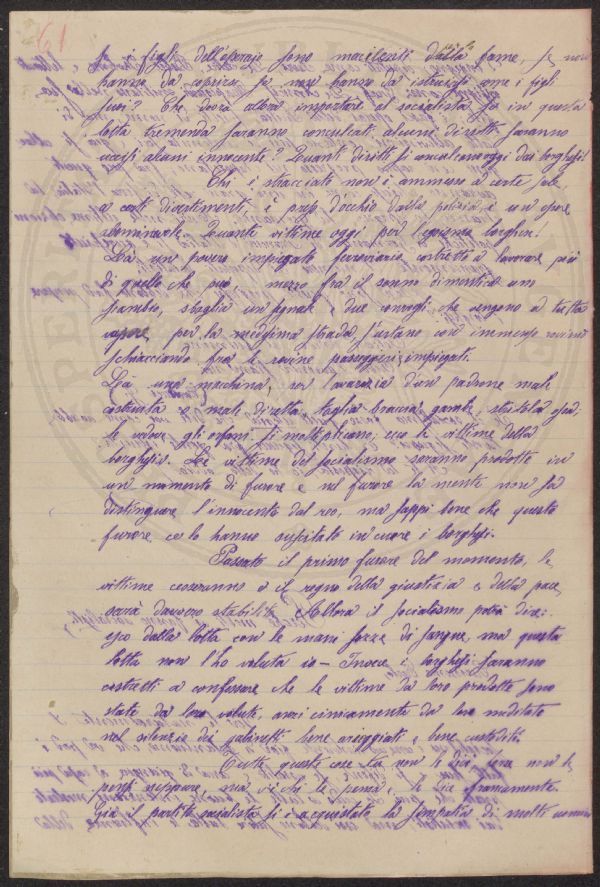 61
se i figli dell'operajo sono macilenti dalla fame, se non
hanno da coprirsi se non hanno da istruirsi come i figli
suoi? Che dovrà alora importare al socialista se in questa
lotta tremenda saranno conculcati alcuni diritti saranno
uccisi alcuni innocente? Quanti diritti si conculcano oggi dai borghesi!
Chi è stracciato non è ammesso a certe sale,
a certi divertimenti, è preso d'occhio dalla polizia, è un essere
abominevole. Quante vittime oggi per l'egoismo borghese!
Là un povero impiegato ferroviario costretto a lavorare più
di quello che può, mezzo fra il sonno dimentica uno
scambio, sbaglia un segnale e due convogli che vengono a tutta
vapore per la medesima strada s'urtano con immense rovine
schiacciando fra le rovine passeggeri impiegati.
Là una machina, per l'avarizia d'un padrone male
costruita o male diretta, taglia braccia, gambe, stritola
le vedove gli orfani si moltiplicano, ecco le vittime della
borghesia. Le vittime del socialismo saranno prodotte in
un momento di furore e nel furore la mente non sa
distinguere l'innocente dal reo, ma sappi bene che questo
furore ce lo hanno suscitato in cuore i borghesi.
Passato il primo furore del momento, le
vittime cesseranno e il regno della giustizia e della pace
sarà davvero stabilito. Allora il socialismo potrà dire:
esco dalla lotta con le mani sozze di sangue, ma questa
lotta non l'ho voluta io — Invece i borghesi saranno
costretti a confessare che le vittime da loro prodotte sono
state da loro volute, anzi cinicamente da loro meditate
nel silenzio dei gabinetti bene areggiati e bene custoditi.
Tutte queste cose Lei non le dice, forse non le
pensa neppure, ma vi è chi le pensa e le dice francamente.
Già il partito socialista si è acquistata la simpatia di molti uomini